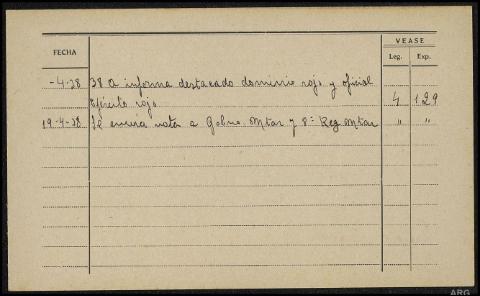 VEASE
FECHA Leg. Exp.
-4-38 38 a informa destacado dominio rojo y oficial
Ejército rojo 4 129
19-4-38 Se envia nota a Gobno. Mtar y 8ª Reg Mtar " "
ARG